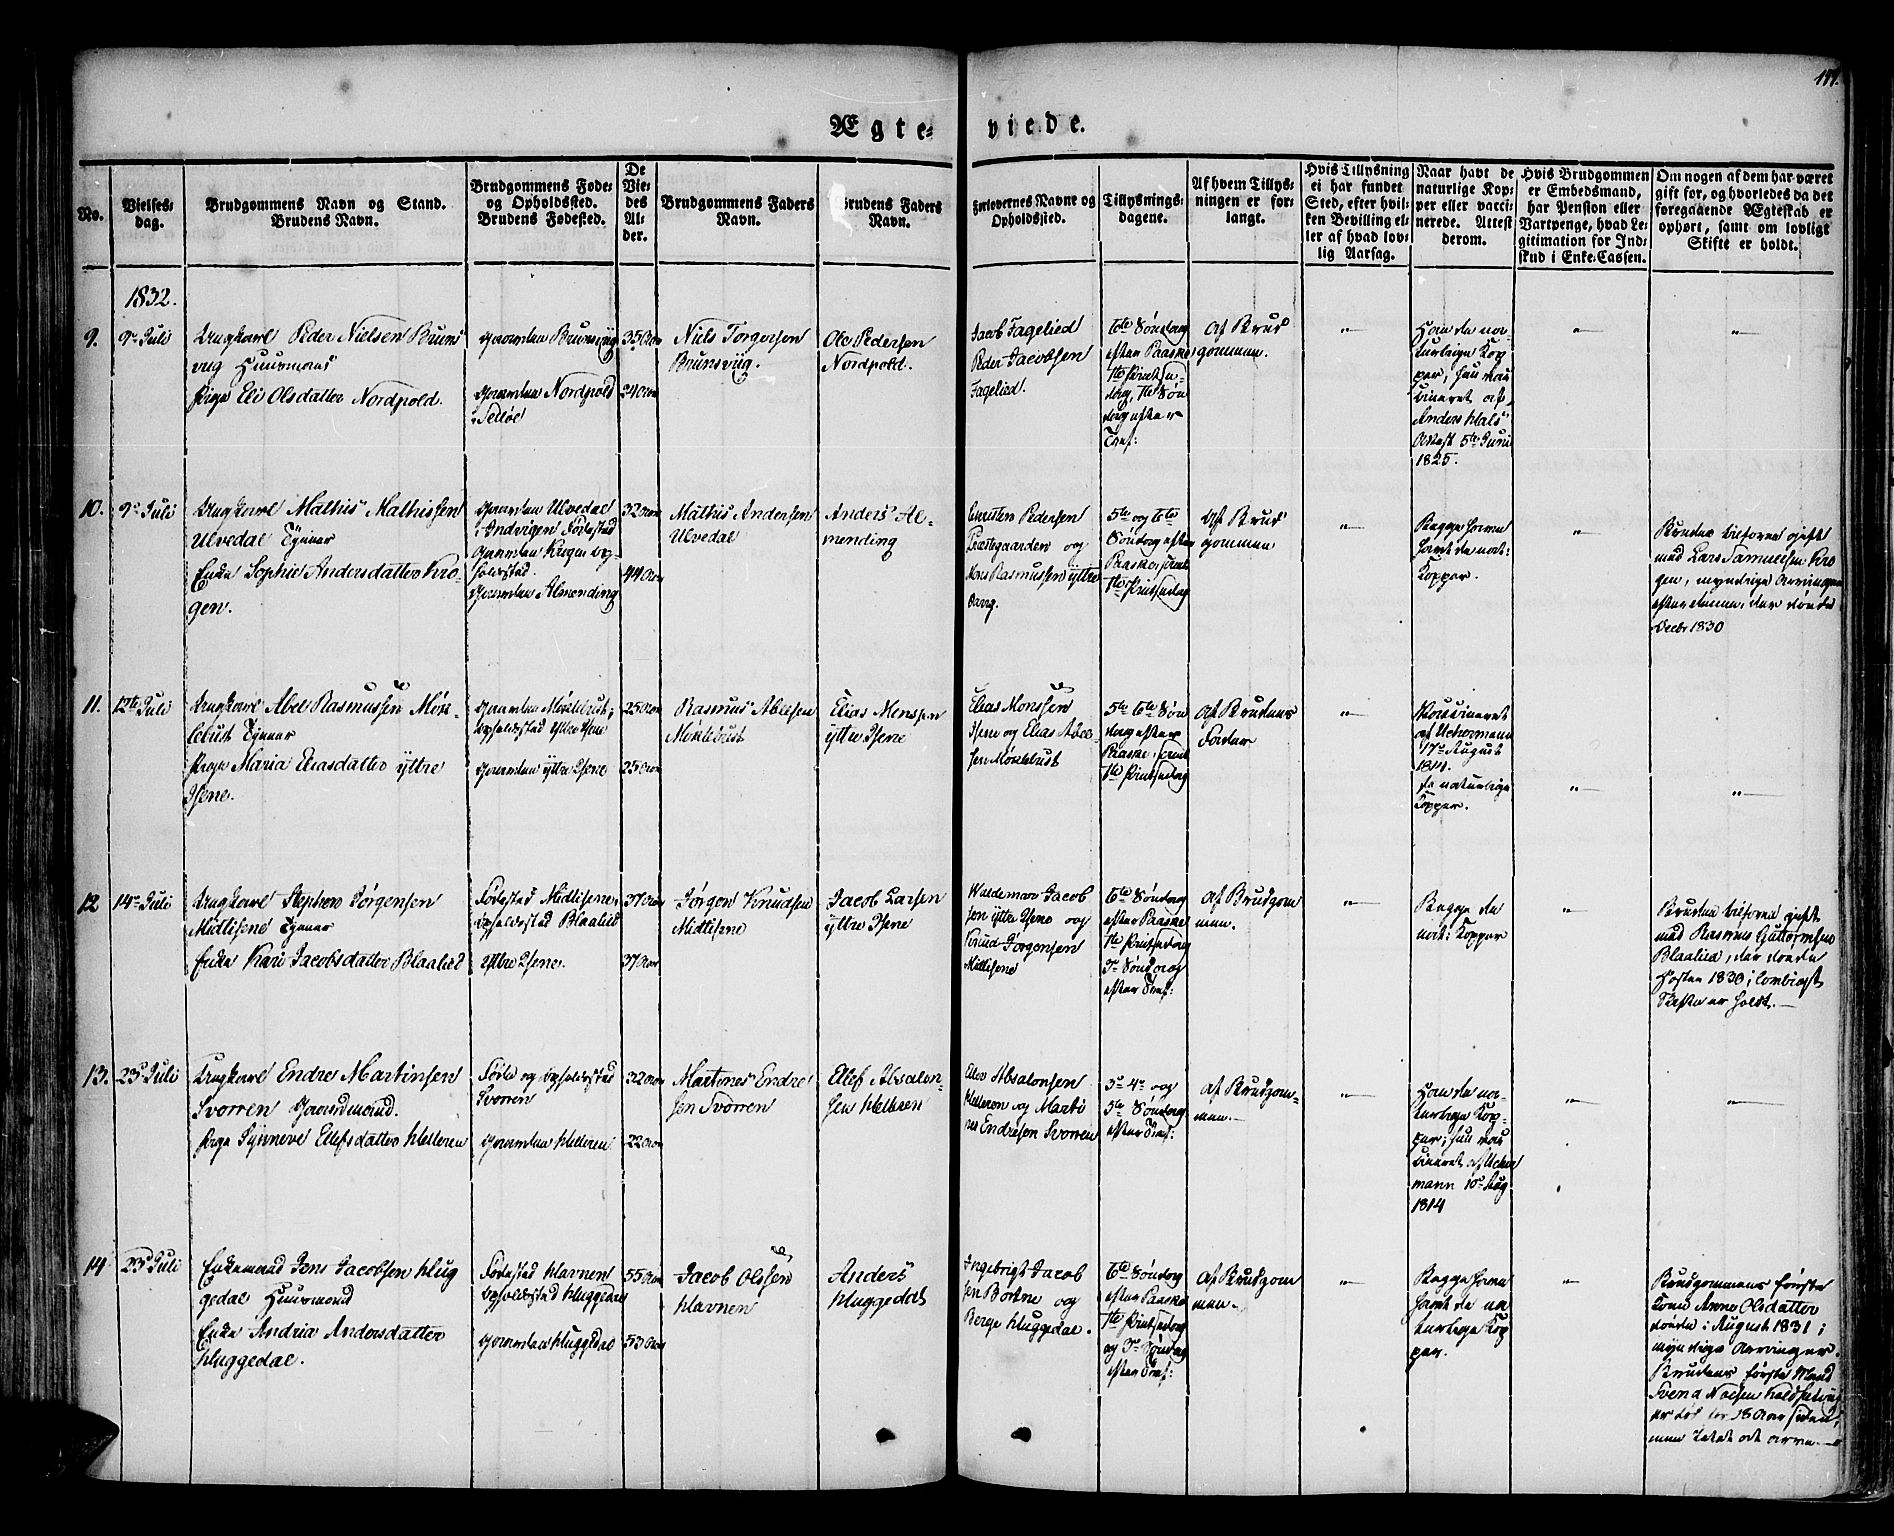 177.
Ægte-
viede.
No.
Vielses-
dag.
Brudgommens Navn og Stand.
Brudens Navn.
Brudgommens Føde-
og Opholdssted.
Brudens Fødested.
De
Vie-
des
Al-
der.
Brudgommens Faders
Navn.
Brudens Faders
Navn.
Forlovernes Navne og
Opholdssted.
Tillysnings-
dagene.
Af hvem Tillys-
ningen er for-
langt.
Hvis Tillysning
ei har fundet
Sted, efter hvil-
ken Bevilling el-
ler af hvad lov-
lig Aarsag.
Naar havt de
naturlige Kop-
per eller vacci-
nerede. Attest
derom.
Hvis Brudgommen
er Embedsmand,
har Pension eller
Vartpenge, hvad Le-
gitimation for Ind-
skud i Enke-Cassen.
Om nogen af dem har været
gift før, og hvorledes da det
foregaaende Ægteskab er
ophørt, samt om lovligt
Skifte er holdt.
1832.
9.
9de Juli
Ungkarl Peder Nielsen Bruns
viig Huusmand
Pige Eli Olsdatter Nordpold.
Gaarden Brunsviig
Gaarden Nordpold
35 Aar
24 Aar
Niels Torgersen
Brunsviig.
Ole Pedersen
Nordpold.
Jacob Fagelied
Peder Jacobsen
Fagelied.
6te Søndag
efter Paaske
1te Pintsedag,
1te Søn
dag efter
Tref:
Af Brud
gommen.
"
Ham de na-
turlige Kop
per, hun vac
cineret af
Anders Hals
Attest 5te Juni
1825.
"
"
10.
9de Juli
Ungkarl Mathis Mathissen
Ulvedal Tjener
Enke Sophie Andersdatter Kro-
gen.
Gaarden Ulvedal
i Andvigen Fødested
Gaarden Krogen op-
holdssted.
Gaarden Almending
32 Aar
44 Aar
Mathis Andersen
Ulvedal
Anders Al-
mending
Christen Pedersen
Præstegaarden og
Mons Rasmussen Yttre
5te og 6te
Søndag efter
Paaske, samt
1te Pintsedag
Af Brud
gommen
"
Begge have
havt de nat:
Kopper.
"
Bruden tilforn gift
med Lars Samuelsen Kro
gen, myndige Arvinger
efter denne, der døde
Decbr 1830
11.
12te Juli
Ungkarl Abel Rasmussen Møk-
lebust Tjener
Pige Maria Eliasdatter Yttre
Isene.
Gaarden Møklebust;
Opholdssted Yttre Isene
Gaarden Yttre Isene
25 Aar
25 Aar
Rasmus Abelsen
Møklebust
Elias Monsen
Yttre Isene
Elias Monssen
Isene og Elias Abel-
sen Møklebust
5te 6te Søn
dag efter
Paaske samt
1te Pintsedag
Af Brudens
Fader
"
Vaccineret
af Uchermann
17de August
1811.
De naturlige
Kopper.
"
"
12
14de Juli
Ungkarl Stephen Jørgensen
Midtisene Tjener
Enke Kari Jacobsdatter Blaalied
Fødested Midtisene,
opholdssted Blaalied
Yttre Isene.
37 Aar
37 Aar
Jørgen Knudsen
Midtisene
Jacob Larsen
Yttre Isene
Waldemar Jacob
sen Yttre Isene og
Knud Jørgensen
Midtisene
6te Søndag
efter Paaske
1te Pintsedag
3de Søndag
efter Tref:
Af Brudgom
men.
"
Begge de
nat: Kopper
"
Bruden tilforn gift
med Rasmus Guttormsen
Blaalied, der døde
Høsten 1830; lovligt
Skifte er holdt.
13.
23de Juli
Ungkarl Endre Martinsen
Svorren Gaardmand.
Pige Synneve Ellefsdatter Helleren
Føde og opholdssted
Svorren
Gaarden Helleren
32 Aar
22 Aar
Martines Endre
sen Svorren
Ellef Absalon-
sen Helleren
Ellev Absalonsen
Helleren og Marti
nes Endresen Svorren
3de 4de og
5te Søndag
efter Tref:
Af Brudgom-
men.
"
Ham de na-
turlige Kop-
per; hun vac
cineret af Ucher
mann 10de Aug
1814
"
"
14
23de Juli
Enkemand Jens Jacobsen Hug
gedal Huusmand
Enke Andria Andersdatter
Huggedal.
Fødested Havnen
opholdssted Huggedal
Gaarden Huggedal
55 Aar
53 Aar
Jacob Olsen
Havnen
Anders
Huggedal
Ingebrigt Jacob
sen Bortne og
Berge Huggedal.
6te Søndag
efter Paaske
1te Pintsedag
og 3de Søndag
efter Tref:
Af Brudgom
men.
"
Begge have
havt de na
turlige Kop
per.
"
Brudgommens første
Kone Anne Olsdatter
døde i August 1831;
myndige Arvinger.
Brudens første Mand
Svend
er død for 18 Aar siden,